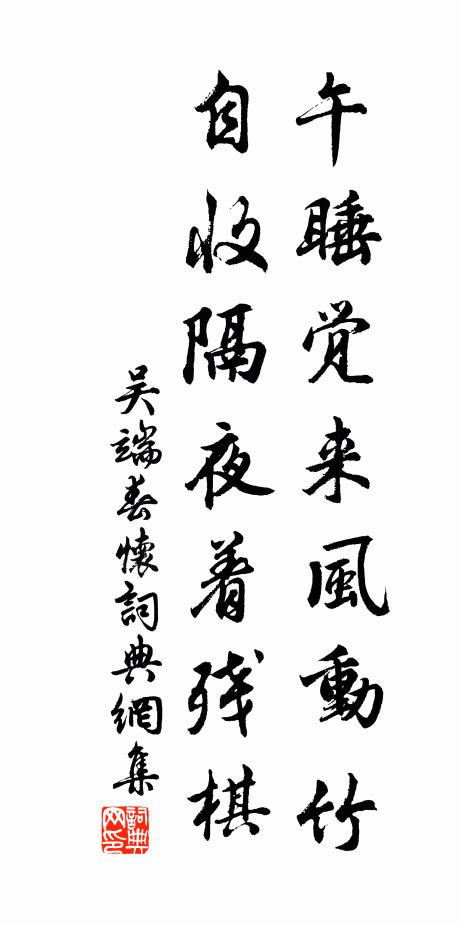 午睡觉来風動竹
自收隔夜着残棋
吴端春懷詞典網集
詞典网印